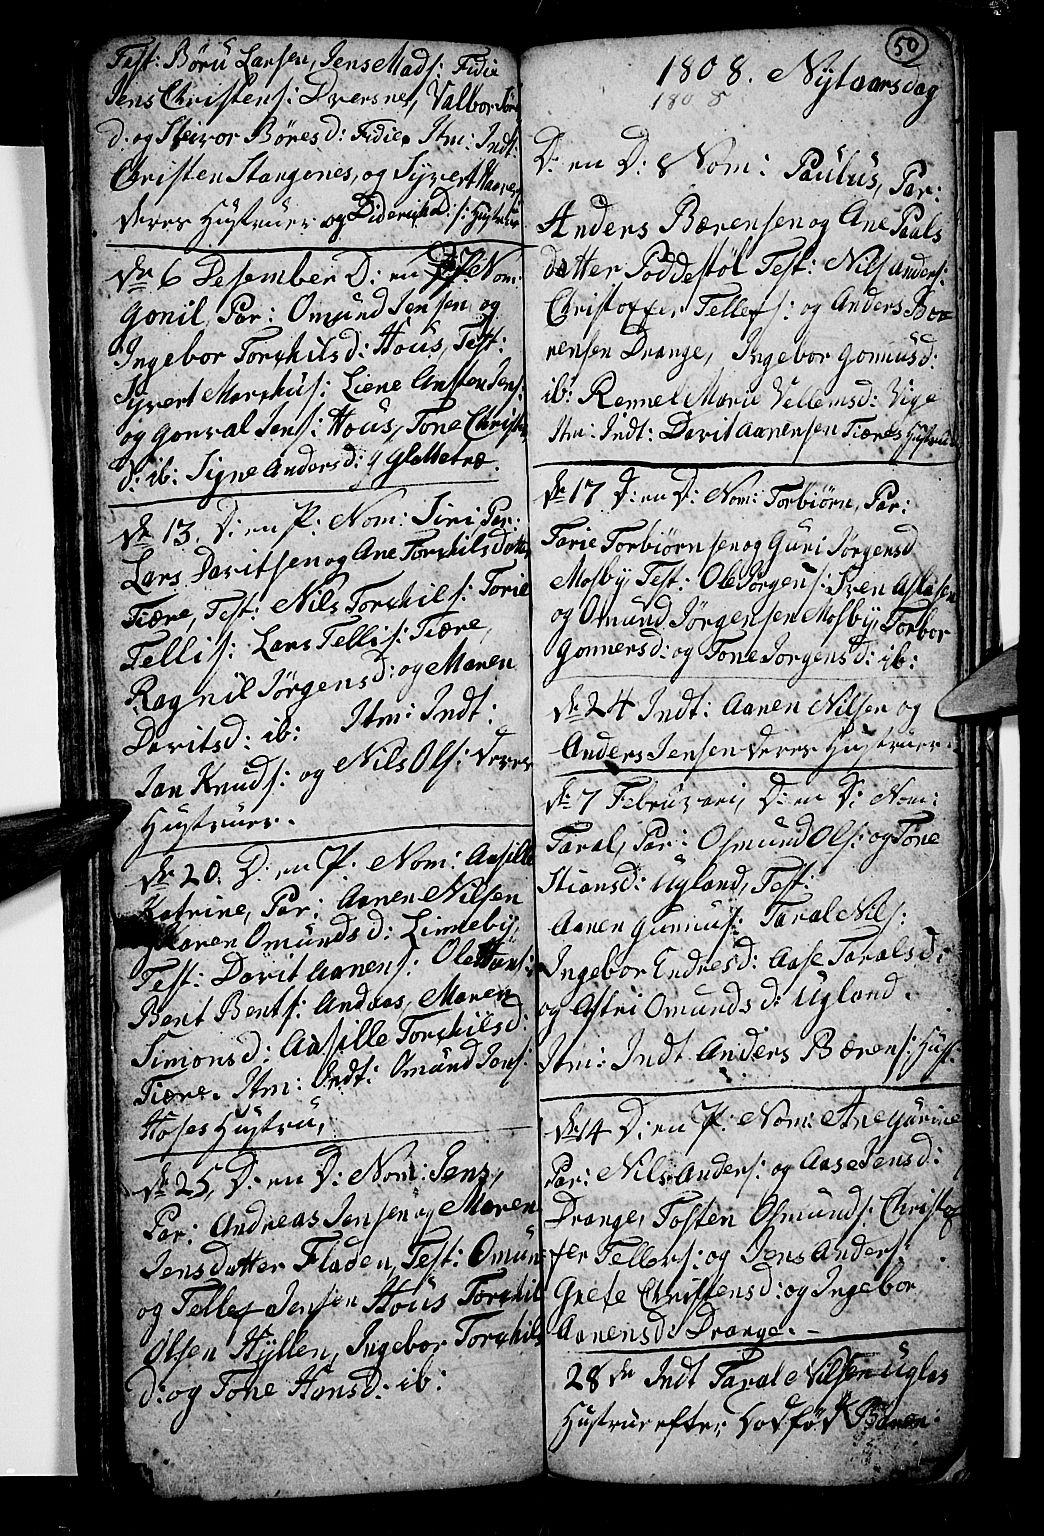 Test: Börü Larsen, Jens Mads: Fidie
Jens Christens: Dversnes, Valbor Jör
d: og Steivor Böresd: Fidie. Itm: Indt:
Christen Stangenes, og Syvert
deres Hustruer og Diderich D:s: Hustrue
dn 6 Desember D: en P: Nom:
Gonil, Par: Omund Jensen og
Ingebor Torkilsd: Hous, Test:
Syvert Markus: Liene Ansten Jens:
og Gonval Jens: Hous, Tone Christen
d: ib: Signe Andersd: Glattetræ.
dn 13. D: en P: Nom: Siri Par:
Lars Davitsen og Ane Torkilsdatter
Tiære, Test: Nils Torkils: Torie
Tellis: Lars Tellis: Tiære,
Ragnil Jörgensd: og Maren
Davitsd: ib: Itm: Indt:
Jan Knuds: og Nils Ols: deres
Hustruer.
dn 20. D: en P: Nom: Aasille
Katrine, Par: Aanen Nilsen
Maren Omundsd: Linneby,
Test: Davit Aanens: Ole Hans:
Bent Bents: Andaas, Maren
Simonsd: Aasille Torkilsd:
Tiære. Itm: Indt: Omund Jens:
Hoses Hustru,
dn 25, D: en D: Nom: Jens,
Par: Andreas Jensen og Maren
Jensdatter Fladen, Test: Omun
og Tellef Jensen Hous Torkil
Olsen Hyllen, Ingebor Torkils
d: og Tone Hansd: ib:
50
1808. Nytaarsdag
1808
D: en D: Nom: Paulus, Par:
Anders Bærensen og Ane Paals
datter Poddestöl Test: Nils Anders:
Christoffer Tellefs: og Anders Bæ
rensen Drange, Ingebor Gonnusd:
ib: Rennel Marie Vellemsd: Vige
Itm: Indt: Davit Aanensen Tiæres Hustrue
dn 17 D: en D: Nom: Torbiörn, Par:
Tarie Torbiörnsen og Guri Jörgensd
Mosby Test: Ole Jörgens: Sven Aslasen
og Omund Jörgensen Mosby, Torbor
Gonnersd: og Tone Jorgensd: ib:
dn 24 Indt: Aanen Nilsen og
Anders Jensen deres Hustruer.
dn 7 Februari, D: en D: Nom:
Taral, Par: Osmund Ols: og Tone
Stiansd: Ugland, Test:
Aanen Gunnus: Taral Nils:
Ingebor Endresd: Aase Taralsd:
og Astri Omundsd: Ugland.
Itm: Indt Anders Bærens: Hust:
dn 14 D: en P: Nom: Ane Gurine
Par: Nils Anders: og Aase Jensd:
Drange, Tosten Osmunds: Christof
fer Tellefs: og Jens Anders:
Grete Christensd: og Ingebor
Aanensd: Drange. –
28 dn Indt Taral Nilsen Uglas
Hustrue efter